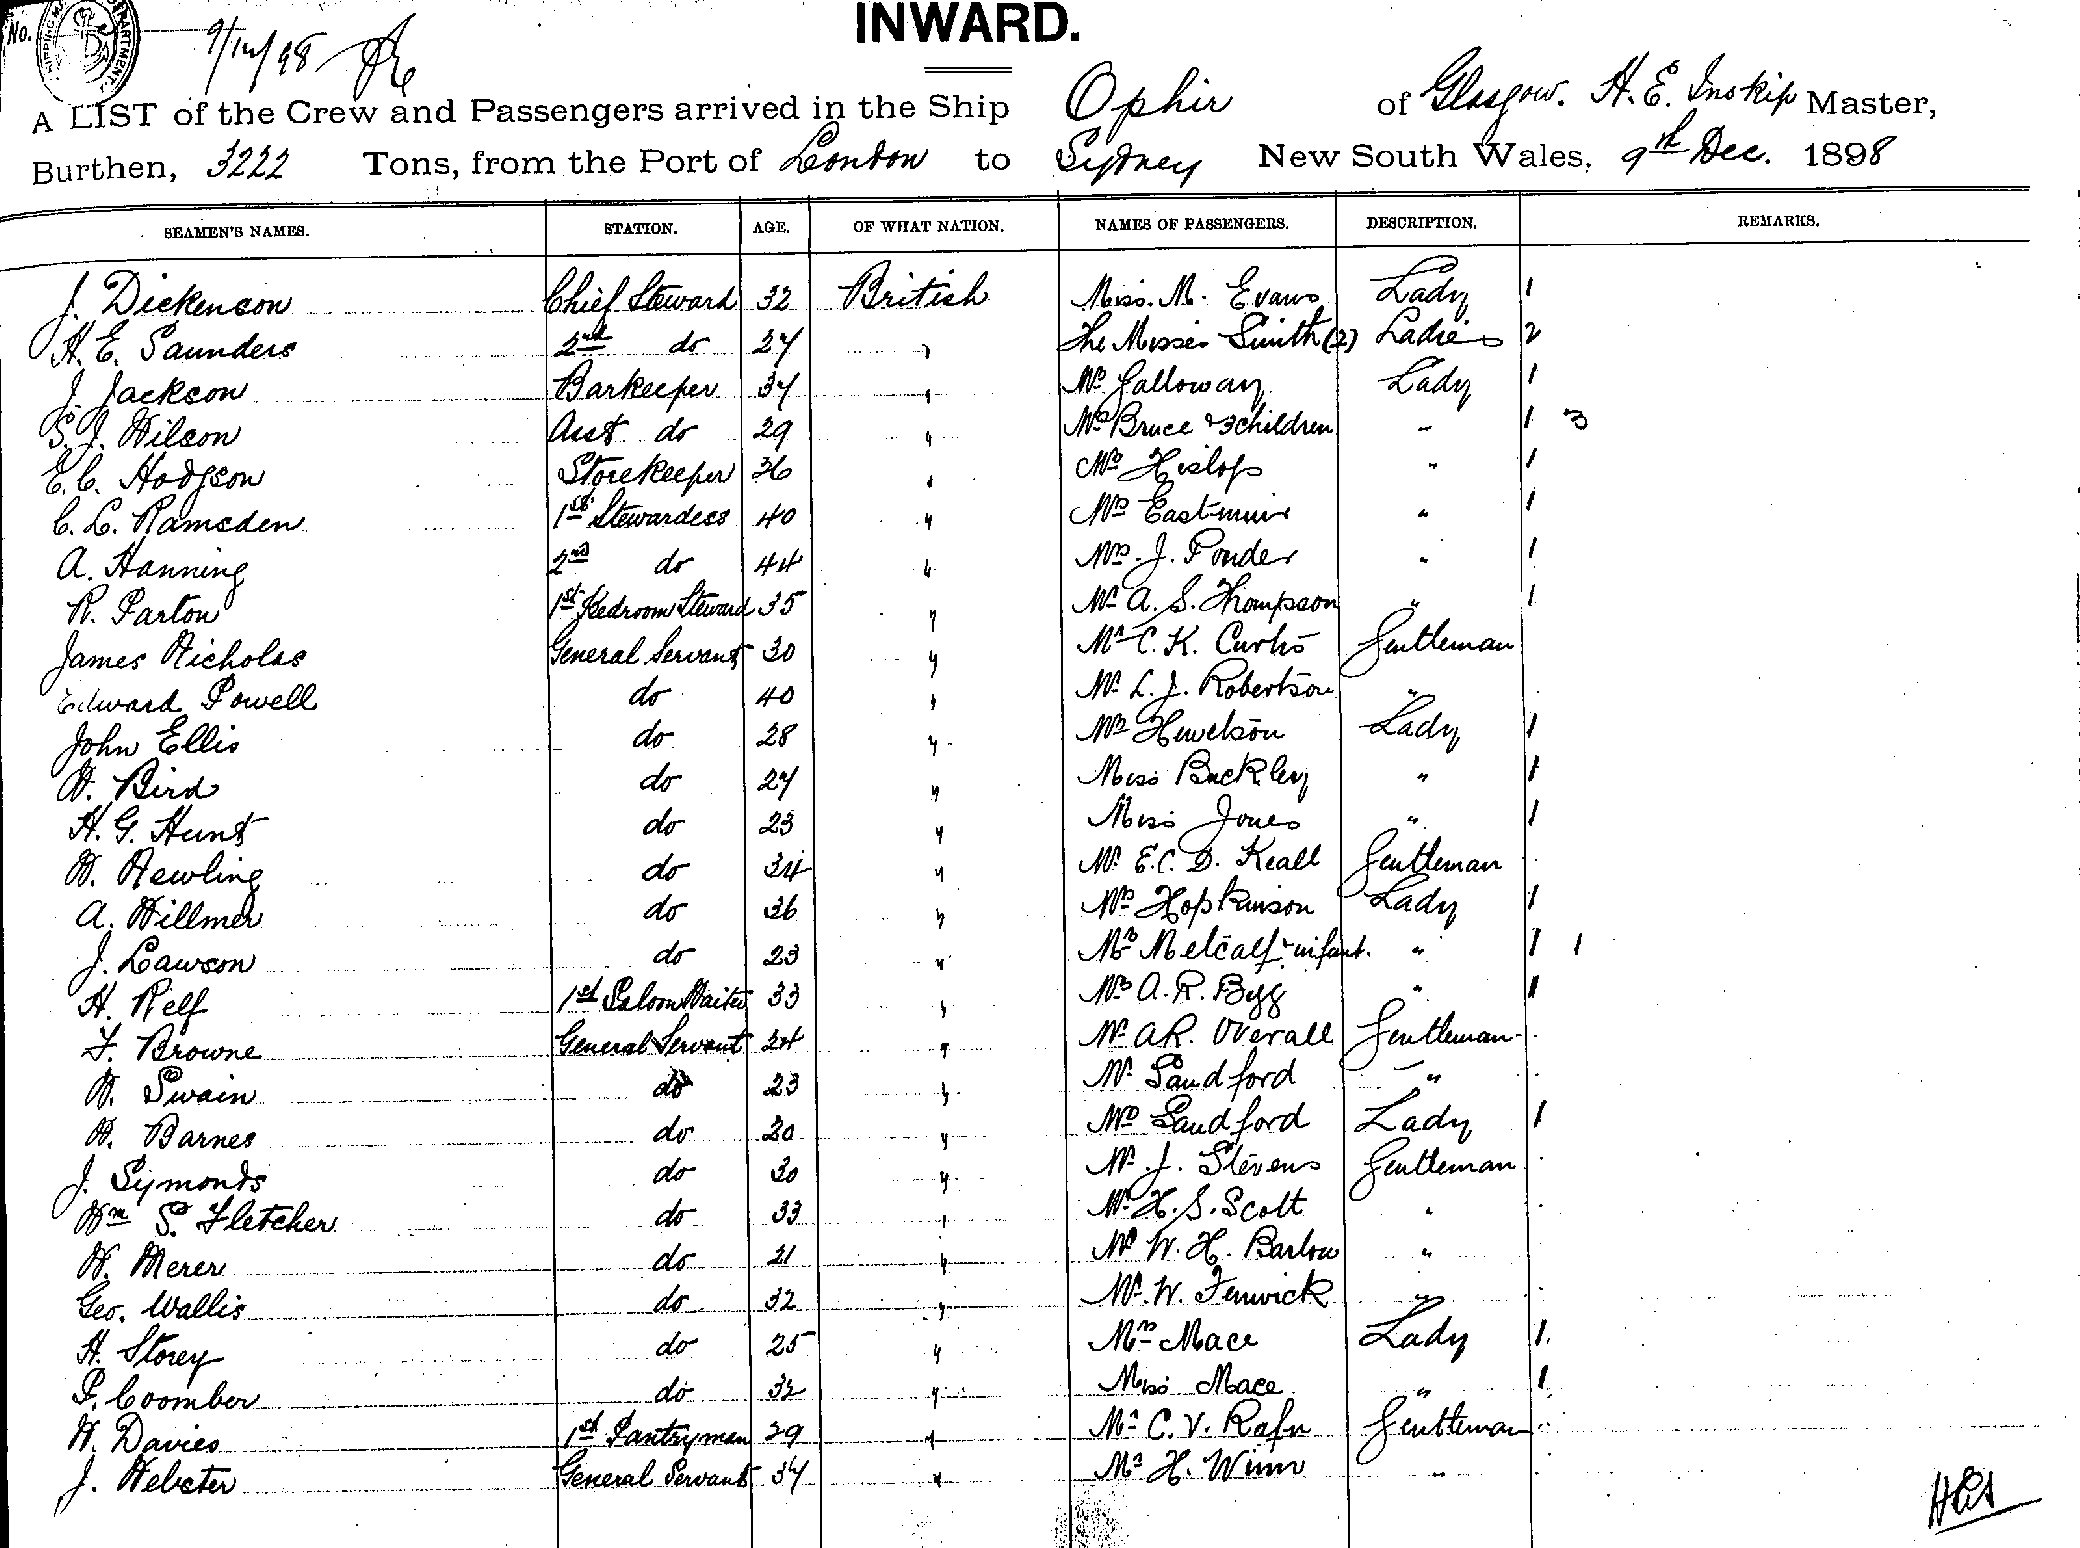 No.
9/12/98
INWARD.
A LIST of the Crew and Passengers arrived in the Ship Ophir of Glasgow. H. E. Inskip Master,
Burthen, 3222 Tons, from the Port of London to Sydney New South Wales, 9th Dec. 1898
SEAMEN'S NAMES. STATION. AGE. OF WHAT NATION. NAMES OF PASSENGERS. DESCRIPTION. REMARKS.
J. Dickenson Chief Steward 32 British Miss. M. Evans Lady 1
H. E. Saunders 2nd do 27 " The Misses Smith (2) Ladies 2
J. Jackson Barkeeper 37 " Mrs Galloway Lady 1
S. J. Wilson Asst do 29 " Mrs Bruce & 3 children " 1 3
E. C. Hodgson Storekeeper 36 " Mrs Hislop " 1
C. L. Ramsden 1st Stewardess 40 " Mrs Eastmuir " 1
A. Hanning 2nd do 44 " Mrs. J. Ponder " 1
R. Parton 1st Bedroom Steward 35 " Mrs A. S. Thompson " 1
James Nicholas General Servant 30 " Mr C. K. Curtis Gentleman
Edward Powell do 40 " Mr L. J. Robertson "
John Ellis do 28 " Mrs Hewetson Lady 1
W. Bird do 27 " Miss Buckley " 1
H. G. Hunt do 23 " Miss Jones " 1
W. Newling do 34 " Mr E. C. D. Keall Gentleman
A. Willmer do 36 " Mrs Hopkinson Lady 1
J. Lawson do 23 " Mrs Metcalf & infant. " 1 1
H. Relf 1st Saloon Waiter 33 " Mrs A. R. Bygg " 1
F. Browne General Servant 24 " Mr A R. Overall Gentleman
W. Swain do 23 " Mr Sandford "
W. Barnes do 20 " Mrs Sandford Lady 1
J. Symonds do 30 " Mr. J. Stevens Gentleman
Wm S. Fletcher do 33 " Mr H. S. Scott "
W. Merer do 21 " Mr W. H. Barlow "
Geo. Wallis do 32 " Mr. W. Fenwick "
H. Storey do 25 " Mrs Mace Lady 1.
P. Coomber do 32 " Miss Mace " 1
W. Davies 1st Pantryman 29 " Mr C. V. Rafn Gentleman
J. Webster General Servant 37 " Mr H. Winn "